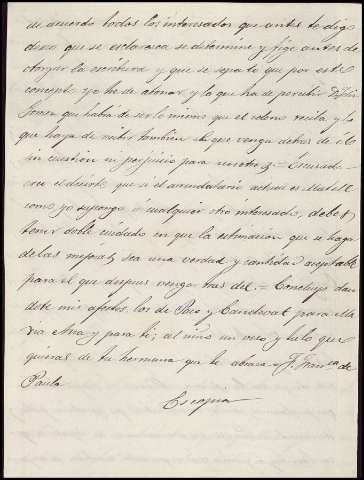 de acuerdo todos los interesados que antes te digo
deseo que se esclarezca se determine y fije antes de
otorgar la escritura y que se sepa lo que por este
concepto yo he de abonar y lo que ha de percibir Dª Luis
Jones que habrá de ser lo mismo que el colono reciba y lo
que haya de meter tambien el que venga detras de él
sin cuestion ni perjuicio para nosotros = Escusado
creo el decirte que si el arrendatario actual es
como yo supongo ó cualquier otro interesado, debes
tener doble cuidado en que la estimacion que se haga
de las mejoras sea una verdad y cantidad aceptable
para el que despues venga tras del. = Concluyo dan
dote mis afectos, los de Paco y Candelas para Ma
ria Ana y para ti; al niño un beso, y tu lo que
quieras de tu hermana que te abraza = J. Franca de
Paula